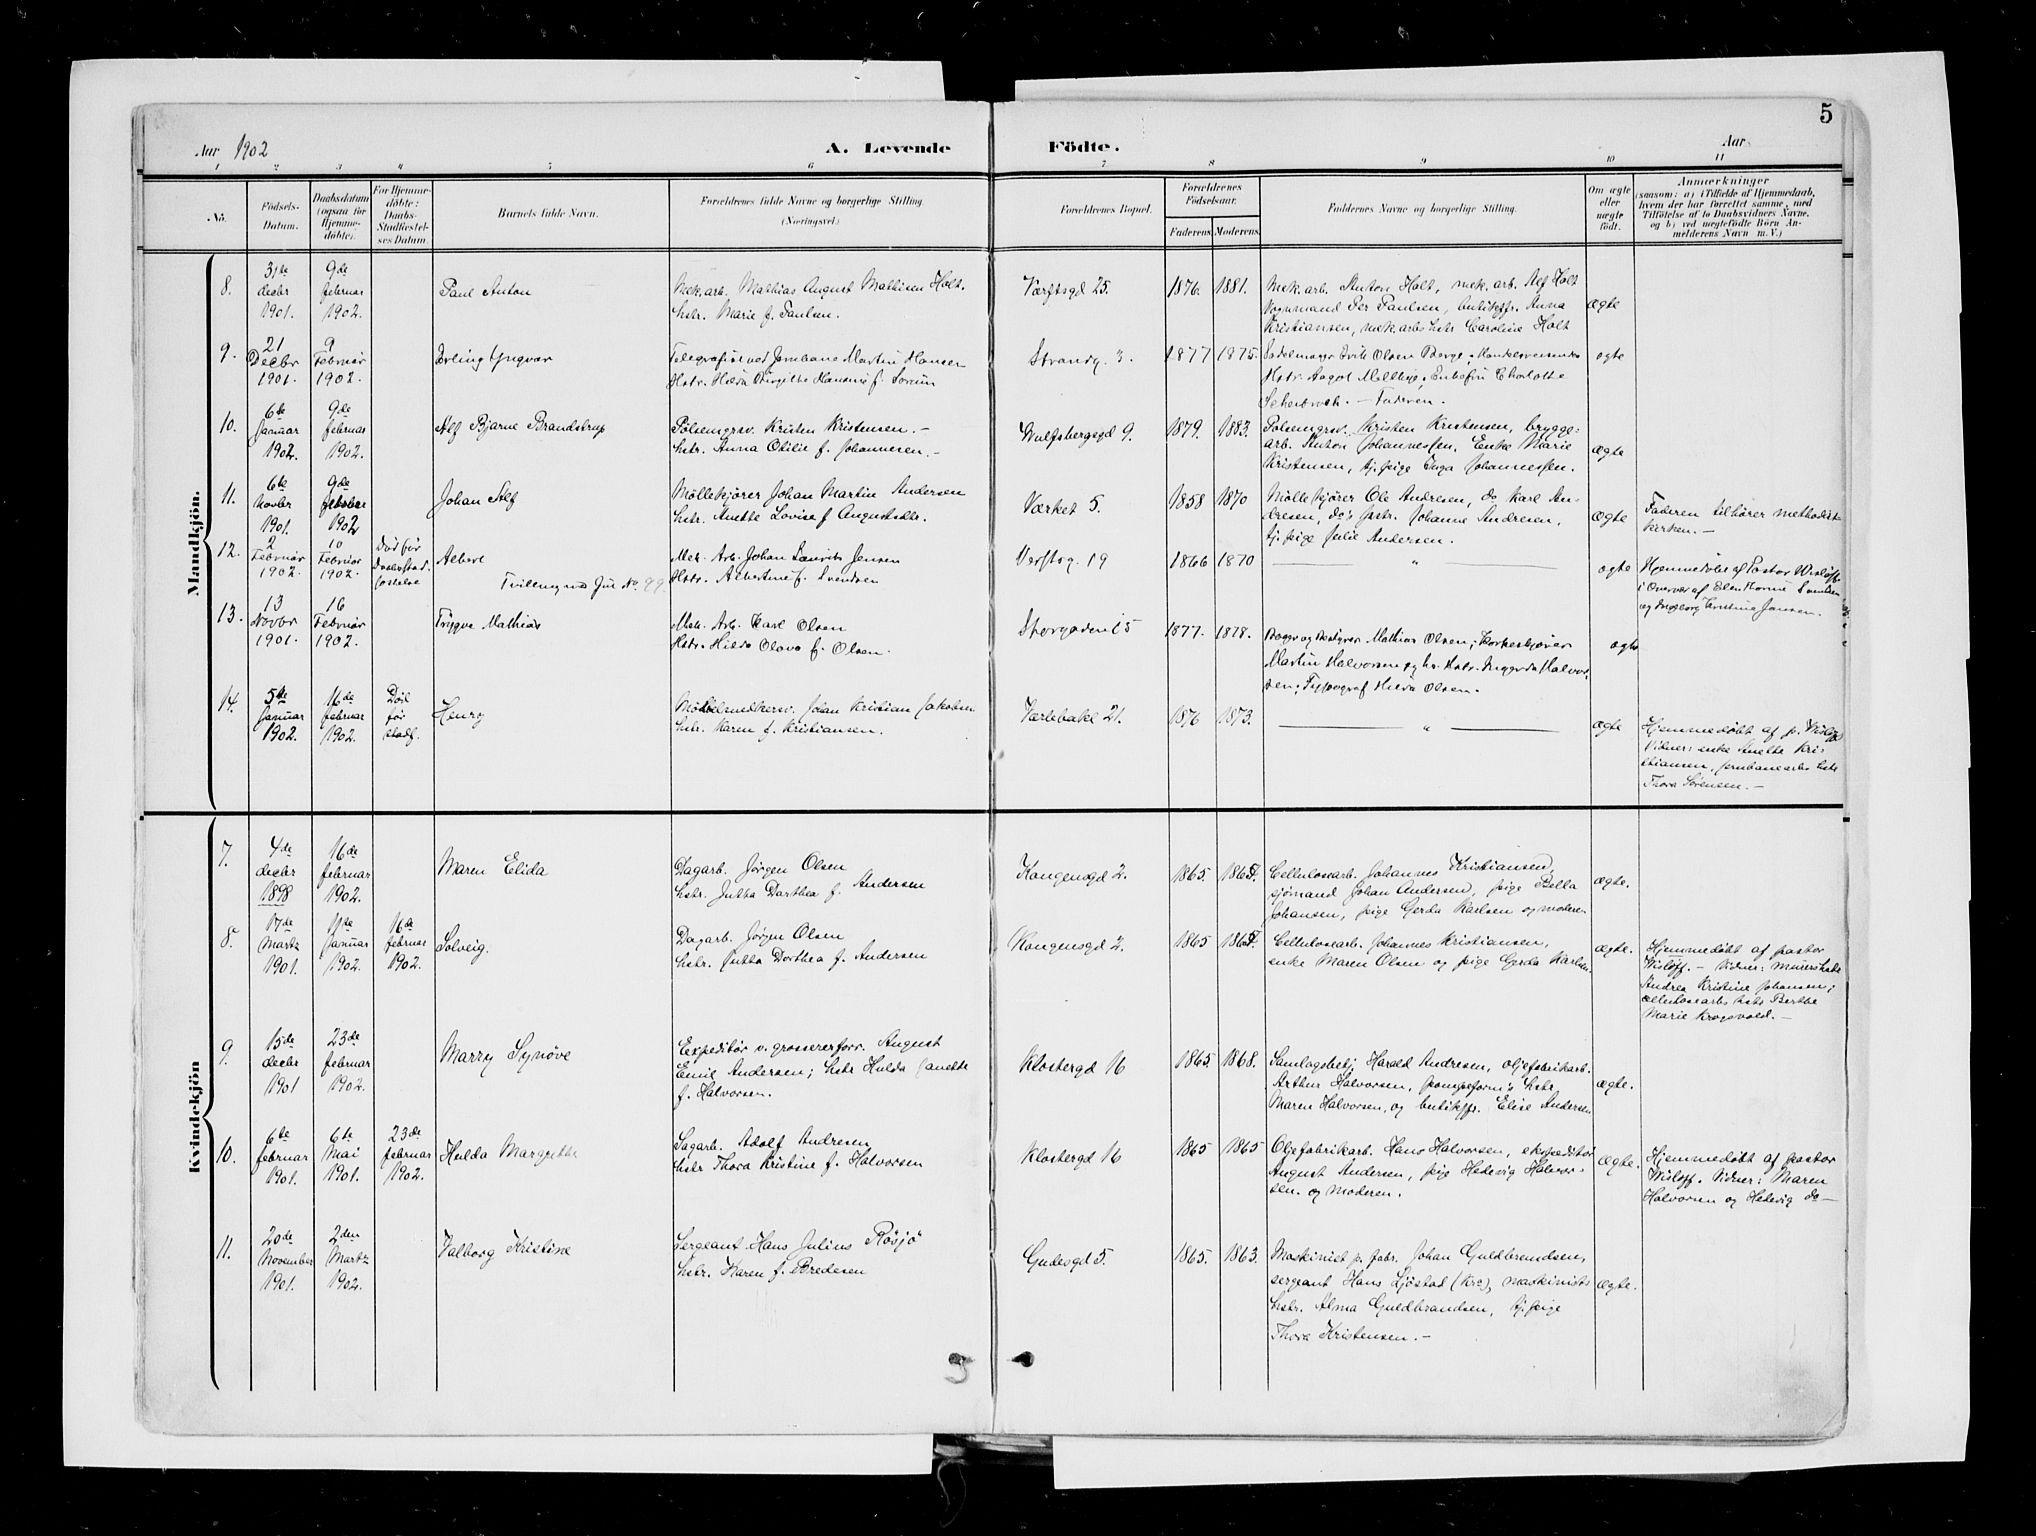 5
Aar 1902
A. Levende
Födte.
Aar
1 2 3 4 5 6 7 8 9 10 11
No.
Födsels-
Datum.
Daabsdatum
(ogsaa for
Hjemme-
döbte).
For Hjemme-
döbte:
Daabs-
Stadfæstel-
ses Datum.
Barnets fulde Navn.
Forældrenes fulde Navne og borgerlige Stilling
(Næringsvei.)
Forældrenes Bopæl.
Forældrenes
Födselsaar.
Faderens
Moderens
Faddernes Navne og borgerlige Stilling.
Om ægte
eller
uægte
födt.
Anmærkninger
(saasom: a) i Tilfælde af Hjemmedaab,
hvem der har forrettet samme, med
Tilföielse af to Daabsvidners Navne,
og b) ved uægtefödte Börn An-
melderens Navn m. V.)
Mandkjön.
8.
31te
decbr
1901.
9de
februar
1902.
Paul Anton
Mek. arb. Mathias August Mathisen Holt.
hstr. Marie f. Paulsen.
Værftsgd 25.
1876. 1881.
Mek. arb. Anton Holt, mek. arb. Alf Holt
Vognmand Per Paulsen, butikjfr. Anna
Kristiansen, mek. arbs hstr Caroline Holt
ægte
9.
21
Decbr
1901.
9
Februar
1902.
Erling Yngvar
Telegrafist ved Jernbane Martin Hansen
Hstr. Hilda Birgitte Hansine f. Sørum
Strandg. 3.
1877 1875.
Sadelmager Erik Olsen Berge; Handelsreisendes
Hstr. Aagot ; Enkefru Charlotte
. — Faderen.
ægte
10.
6te
Januar
1902.
9de
februar
1902.
Alf Bjarne Brandstrup
Pölsemgrsv. Kristen Kristensen. —
hstr. Anna Otilie f. Johannesen. —
Wulfsbergsgd 9.
1879. 1883.
Pölsemgrsv. Kristen Kristensen, brygge-
arb. Anton Johannessen, Enke Marie
Kristensen, tj. pige Inga Johannessen.
ægte
11.
6te
Novbr
1901.
9de
februar
1902
Johan Alf
Möllekjører Johan Martin Andersen
hstr. Anette Lovise f. Augustsdtr.
Værket 5.
1858 1870
Möllekjører Ole Andresen, do Karl An-
dresen, do's hstr. Johanne Andresen,
tj. pige Julie Andersen.
ægte
Faderen tilhører methodist-
kerken. —
12.
2
Februar
1902.
10
Februar
1902.
Död før
Daabsstad-
fæstelse
Albert
Tvillingmod
Mek. Arb. Johan Laurits Jensen
Hstr. Albertine f. Svendsen
Verftsg. 19
1866 1870
— " —
ægte
Hjemmedøbt af Pastor Wisløff
i Overvær af Elen Svendsen
og Ingeborg Kristine Jansen.
13.
13
Novbr
1901.
16
Februar
1902.
Trygve Mathias
Mek. Arb. Karl Olsen
Hstr. Hilda Olava f. Olsen.
Storgaden 15
1877. 1878.
Mathias Olsen;
Martin Halvorsen og hs. Hstr. Halvor-
sen; Typograf Hilda Olsen.
ægte
14.
5te
Januar
1902.
16de
februar
1902.
Död
før
stadf.
Henry
Möbelsnedkersv. Johan Kristian Jakobsen
hstr. Karen f. Kristiansen.
Værlebakk 21.
1876 1873.
— " —
ægte
Hjemmedøbt af p. Wisløff
Vidner: enke Anette Kri-
stiansen, jernbanearbs hstr
Thora Sörensen. —
Kvindekjön
7.
4de
decbr
1898
16de
februar
1902.
Maren Elida
Dagarb. Jörgen Olsen
hstr. Jutta Dorthea f. Andersen
Kongensgd 2.
1865. 1865.
Cellulosearb. Johannes Kristiansen,
sjømand Johan Andersen, pige Bella
Johansen, pige Gerda Karlsen og moderen
ægte.
8.
17de
Martz
1901.
11te
Januar
1902.
16de
februar
1902.
Solveig.
Dagarb. Jörgen Olsen
hstr. Jutta Dorthea f. Andersen
Kongensgd 2.
1865
Cellulosearb. Johannes Kristiansen,
enke Maren Olsen og pige Gerda Karlsen.
ægte.
Hjemmedøbt af pastor
Wisløff. — Vidner: murers hstr
Andrea Kristine Johansen;
cellulosearbs hstr Berthe
Marie Krogsvold. —
9.
15de
decbr
1901
23de
februar
1902.
Marry Synöve
Expeditör v. grossererforr. August
Emil Andersen; hstr Hulda Janette
f. Halvorsen.
Klostergd 16
1865. 1868.
Samlagsbetj. Harald Andresen, oljefabrikarb.
Arthur Halvorsen, pumpeform's hstr,
Maren Halvorsen, og butikjfr. Elise Andersen
ægte.
10.
6te
februar
1901.
6te
Mai
1901.
23de
februar
1902.
Hulda Margrethe
Sagarb. Adolf Andresen
hstr Thora Kristine f. Halvorsen
Klostergd 16
1865 1865
Oljefabrikarb. Hans Halvorsen, ekspeditör
August Andersen, pige Hedevig Halvor-
sen. og moderen.
ægte.
Hjemmedøbt af pastor
Wisløff. Vidner: Maren
Halvorsen og Hedevig do —
11.
20de
November
1901.
2den
Martz
1902.
Valborg Kristine
Sergeant. Hans Julius Rösjö
hstr. Karen f. Bredesen
Gudesgd 5.
1865. 1863.
Maskinist p. fabr. Johan Guldbrandsen,
sergeant Hans Ljöstad (Kra), maskinists
hstr. Alma Guldbrandsen, tj. pige
Thora Kristensen. —
ægte.